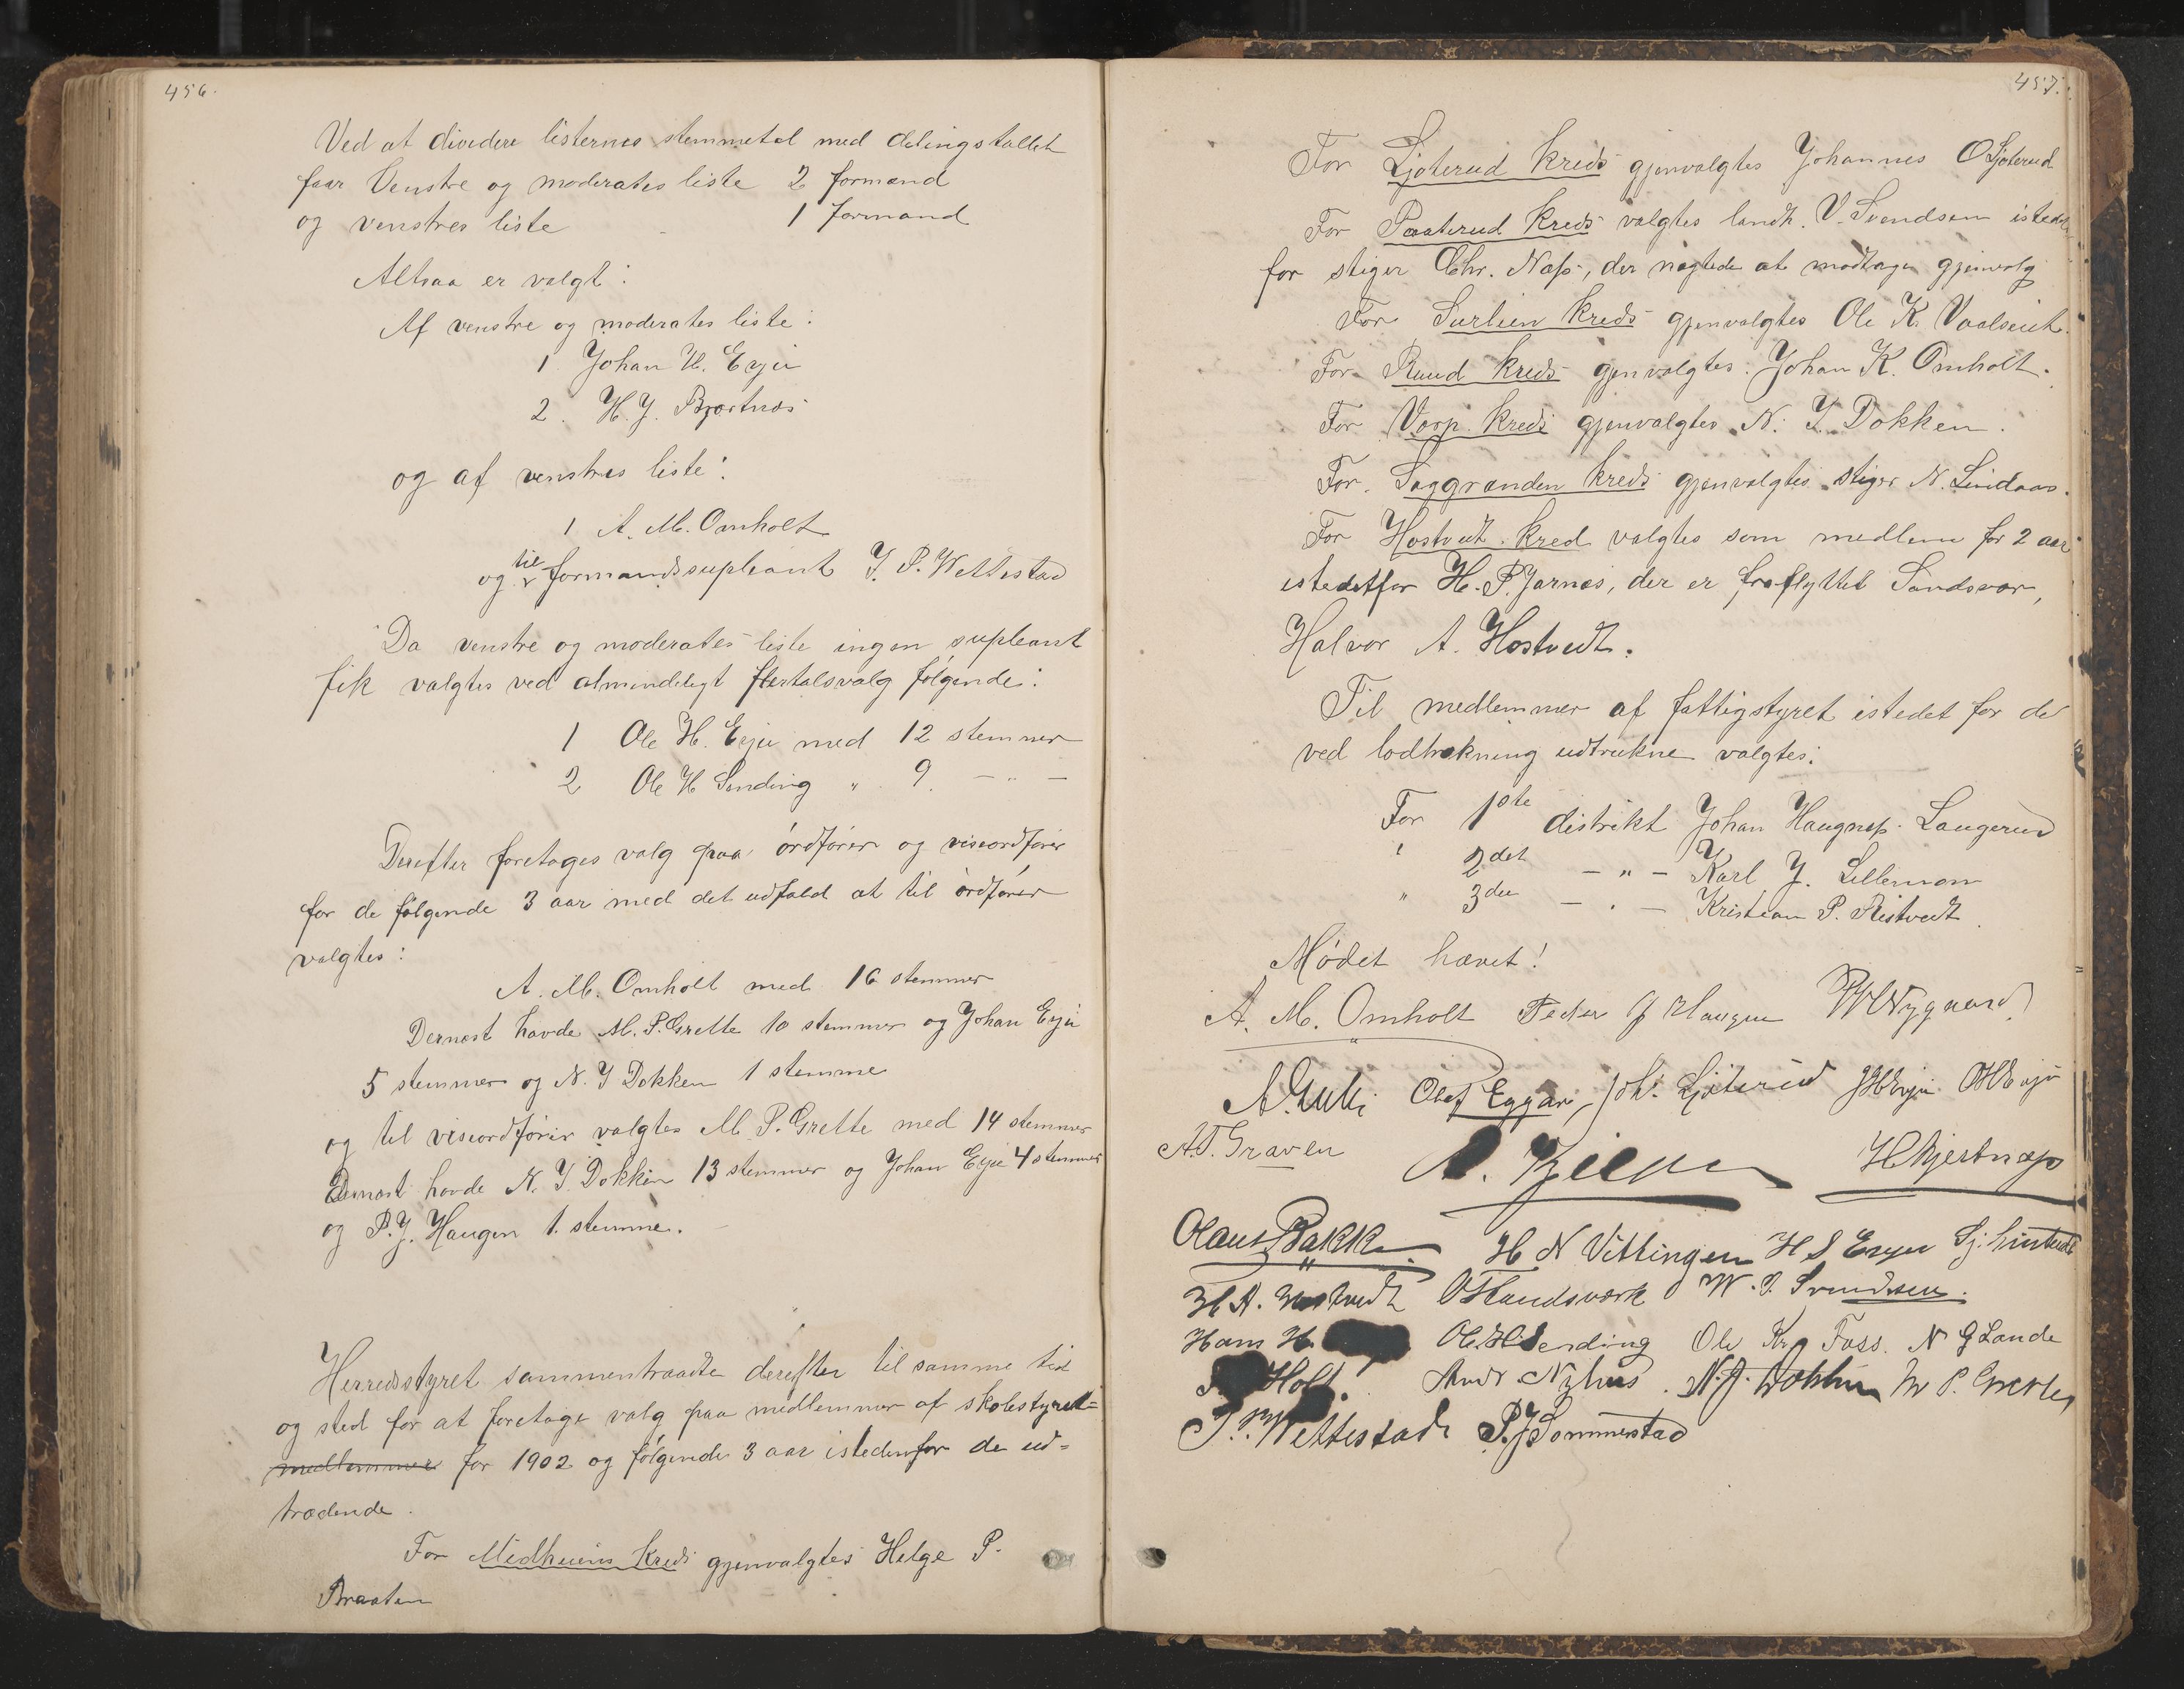 456.
Ved at dividere listernes stemmetal med delingstallet
faar Venstre og moderates liste 2 formænd
og venstres liste - 1 formand
Altsaa er valgt:
Af venstre og moderates liste:
1 Johan H. Eyju
2. H. J. Bjørtnæs
og af venstres liste:
1 A. M. Omholt
og til formandssupleant J. P. Wettestad
Da venstre og moderates liste ingen supleant
fik valgtes ved almindeligt flertalsvalg følgende:
1 Ole H. Eyju med 12 stemmer
2 Ole H Sending " 9. - " -
Derefter foretoges valg paa ordfører og viseordfører
for de følgende 3 aar med det udfald at til ordfører
valgtes:
A. M. Omholt med 16 stemmer
Dernæst havde M. P. Grette 10 stemmer og Johan Eyju
5 stemmer og N. J Dokken 1 stemme
og til viseordfører valgtes M. P. Grette med 14 stemmer
Dernæst havde N. J. Dokken 13 stemmer og Johan Eyju 4 stemmer
og P. J. Haugen 1. stemme.
Herredsstyret sammentraadte derefter til samme tid
og sted for at foretage valg paa medlemmer af skolestyret=
medlemmer for 1902 og følgende 3 aar istedenfor de ud=
trædende.
For Midtheiens Kreds gjenvalgtes Helge P.
Braaten
457.
For Ljøterud Kreds gjenvalgtes Johannes O Ljøterud
For Paaterud Kreds valgtes landh. V. Svendsen istedet
for stiger Chr. Næss, der nægtede at modtage gjenvalg
For Surlien Kreds gjenvalgtes Ole K.
For Ruud Kreds gjenvalgtes. Johan K. Omholt.
For Vorp. Kreds gjenvalgtes N. J. Dokken.
For. Saggrænden Kreds gjenvalgtes stiger N. Lindaas.
For Hostvedt. Kred valgtes som medlem for 2 aar
istedetfor H. P. Jarnæs, der er fraflyttet Sandsvær,
Halvor A. Hostvedt.
Til medlemmer af fattigstyret istedet for de
ved lodtrækning udtrukne valgtes:
For 1ste distrikt Johan Haugnæss Laugerud
" 2det - " - Karl J. Lilleman
" 3die - " - Kristian P. Ristvedt.
Mødet hævet!
A. M. Omholt Peder J Haugen PWNygaard
A. Gulli Olaf Eggar Joh. Ljøterud JHEyju OHEyju
A. T. Graven HBjertnæss
Olaus Bakke H N Vittingen H S Eyju
H A. Hostvedt OTLandsverk W. J. Svendsen.
Hans H. Ole H Sending Ole Kr Foss. N G Lande
Holt. Andr Nyhus. N. J. Dokken M P. Grette
J. P. Wettestad P. J Sommerstad